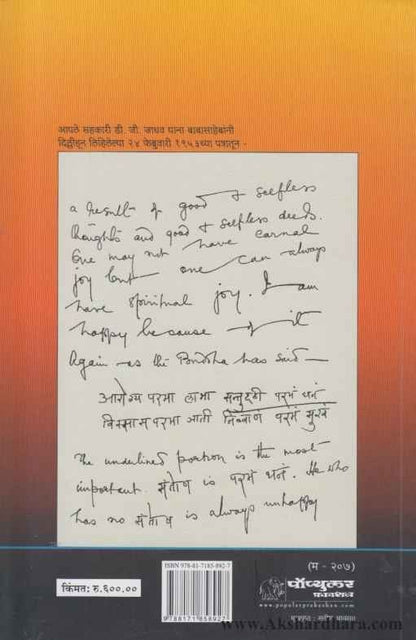 आपले सहकारी डी. जी. जाधव यांना बाबासाहेबांनी
दिल्लीहून लिहिलेल्या २४ फेब्रुवारी १९५३च्या पत्रातून -
a result of good & selfless
thoughts and good & selfless deeds.
One may not have carnal
joy but one can always
have spiritual joy. I am
happy because of it
Again - as the Buddha has said -
आरोग्य परमा लाभा सन्तुट्ठी परमं धनं
विस्सास परमा ञाती निब्बाणं परमं सुखं
The underlined portion is the most
important. संतोष is परमं धनं. He who
has no संतोष is always unhappy
किंमत: रु.६००.००
ISBN 978-81-7185-892-7
9788171858927
(म - २०७)
पॉप्युलर
प्रकाशन
www.popularprakashan.com
मुखपृष्ठ : सतीश भावसार
www.Akshardhara.com